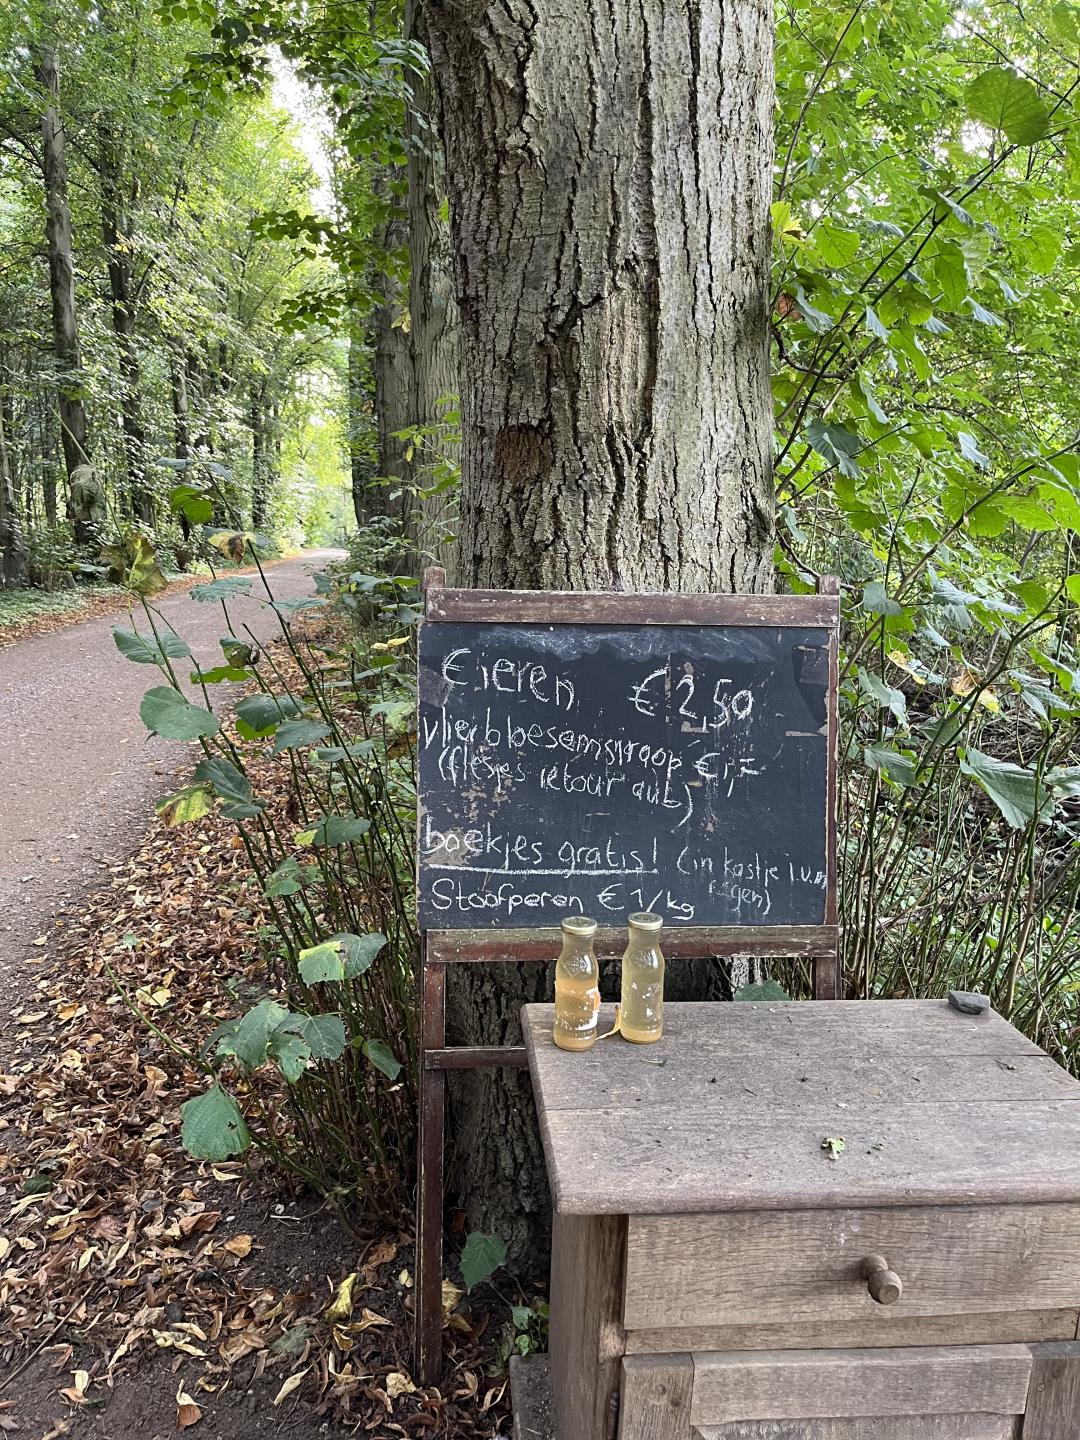 Eieren € 2,50
vlierbbesemsiroop € 1,=
(flesjes retour aub)
boekjes gratis! (in kastje i.v.m
regen)
Stoofperen € 1/kg